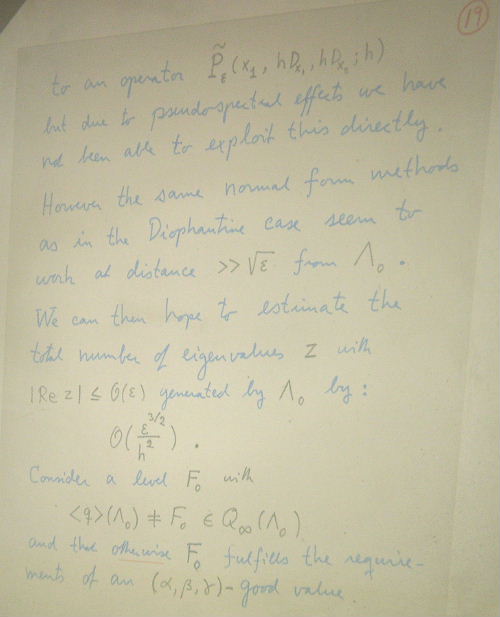 19
to an operator P̃_ε(x₁, hD_{x₁}, hD_{x₂}; h)
but due to pseudospectral effects we have
not been able to exploit this directly.
However the same normal form methods
as in the Diophantine case seem to
work at distance >> √ε from Λ₀.
We can then hope to estimate the
total number of eigenvalues z with
|Re z| ≤ O(ε) generated by Λ₀ by:
O(ε^{3/2}/h²).
Consider a level F₀ with
<q>(Λ₀) ≠ F₀ ∈ Q_∞(Λ₀)
and that otherwise F₀ fulfills the require-
ments of an (α, β, γ)-good value.